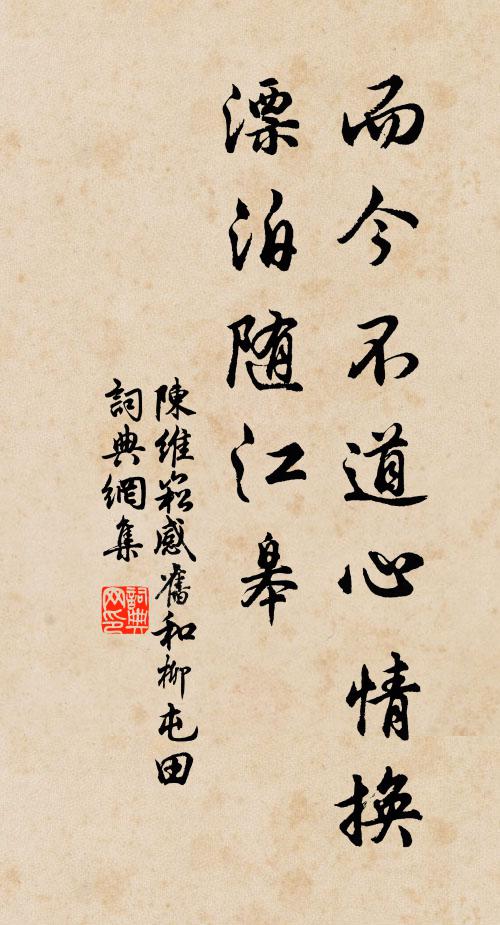 而今不道心情換
漂泊随江皋
陳維崧感舊和柳屯田
詞典網集
詞典
网印